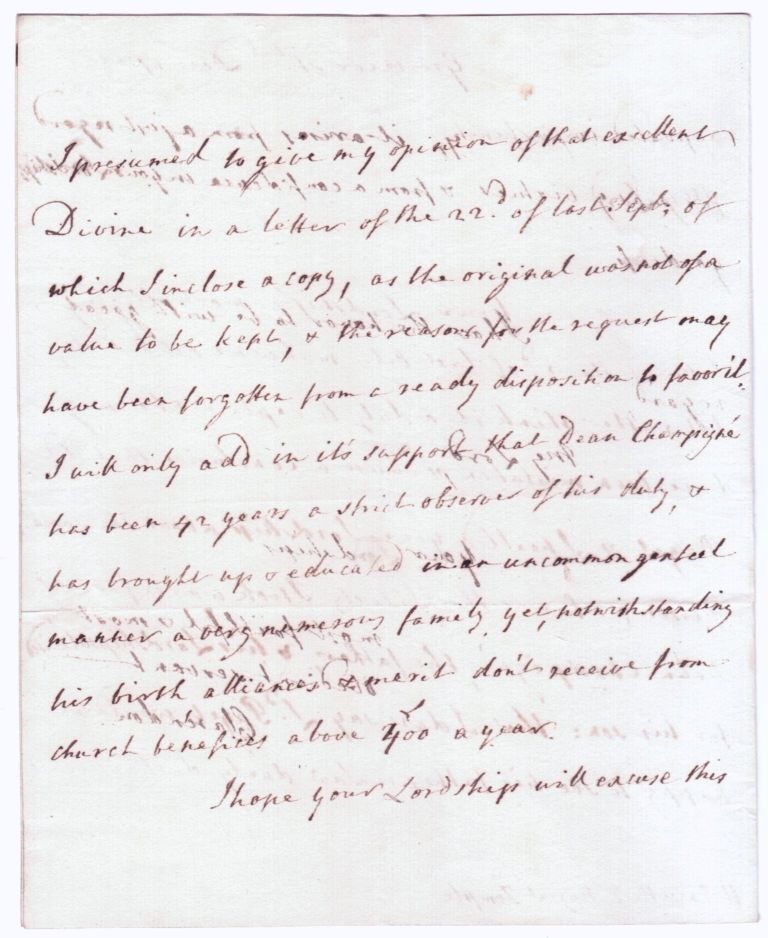 I presumed to give my opinion of that excellent
Divine in a letter of the 22.d of last Sept; of
which I inclose a copy, as the original was not of a
value to be kept, & the reasons for the request may
have been forgotten from a ready disposition to favor it.
I will only add in it's support that Dean Champigné
has been 42 years a strict observer of his duty, &
has brought up & educated in an uncommon genteel
manner a very numerous family, yet, notwithstanding
his birth alliances & merit don't receive from
church benefices above 400 a year.
I hope your Lordship will excuse this